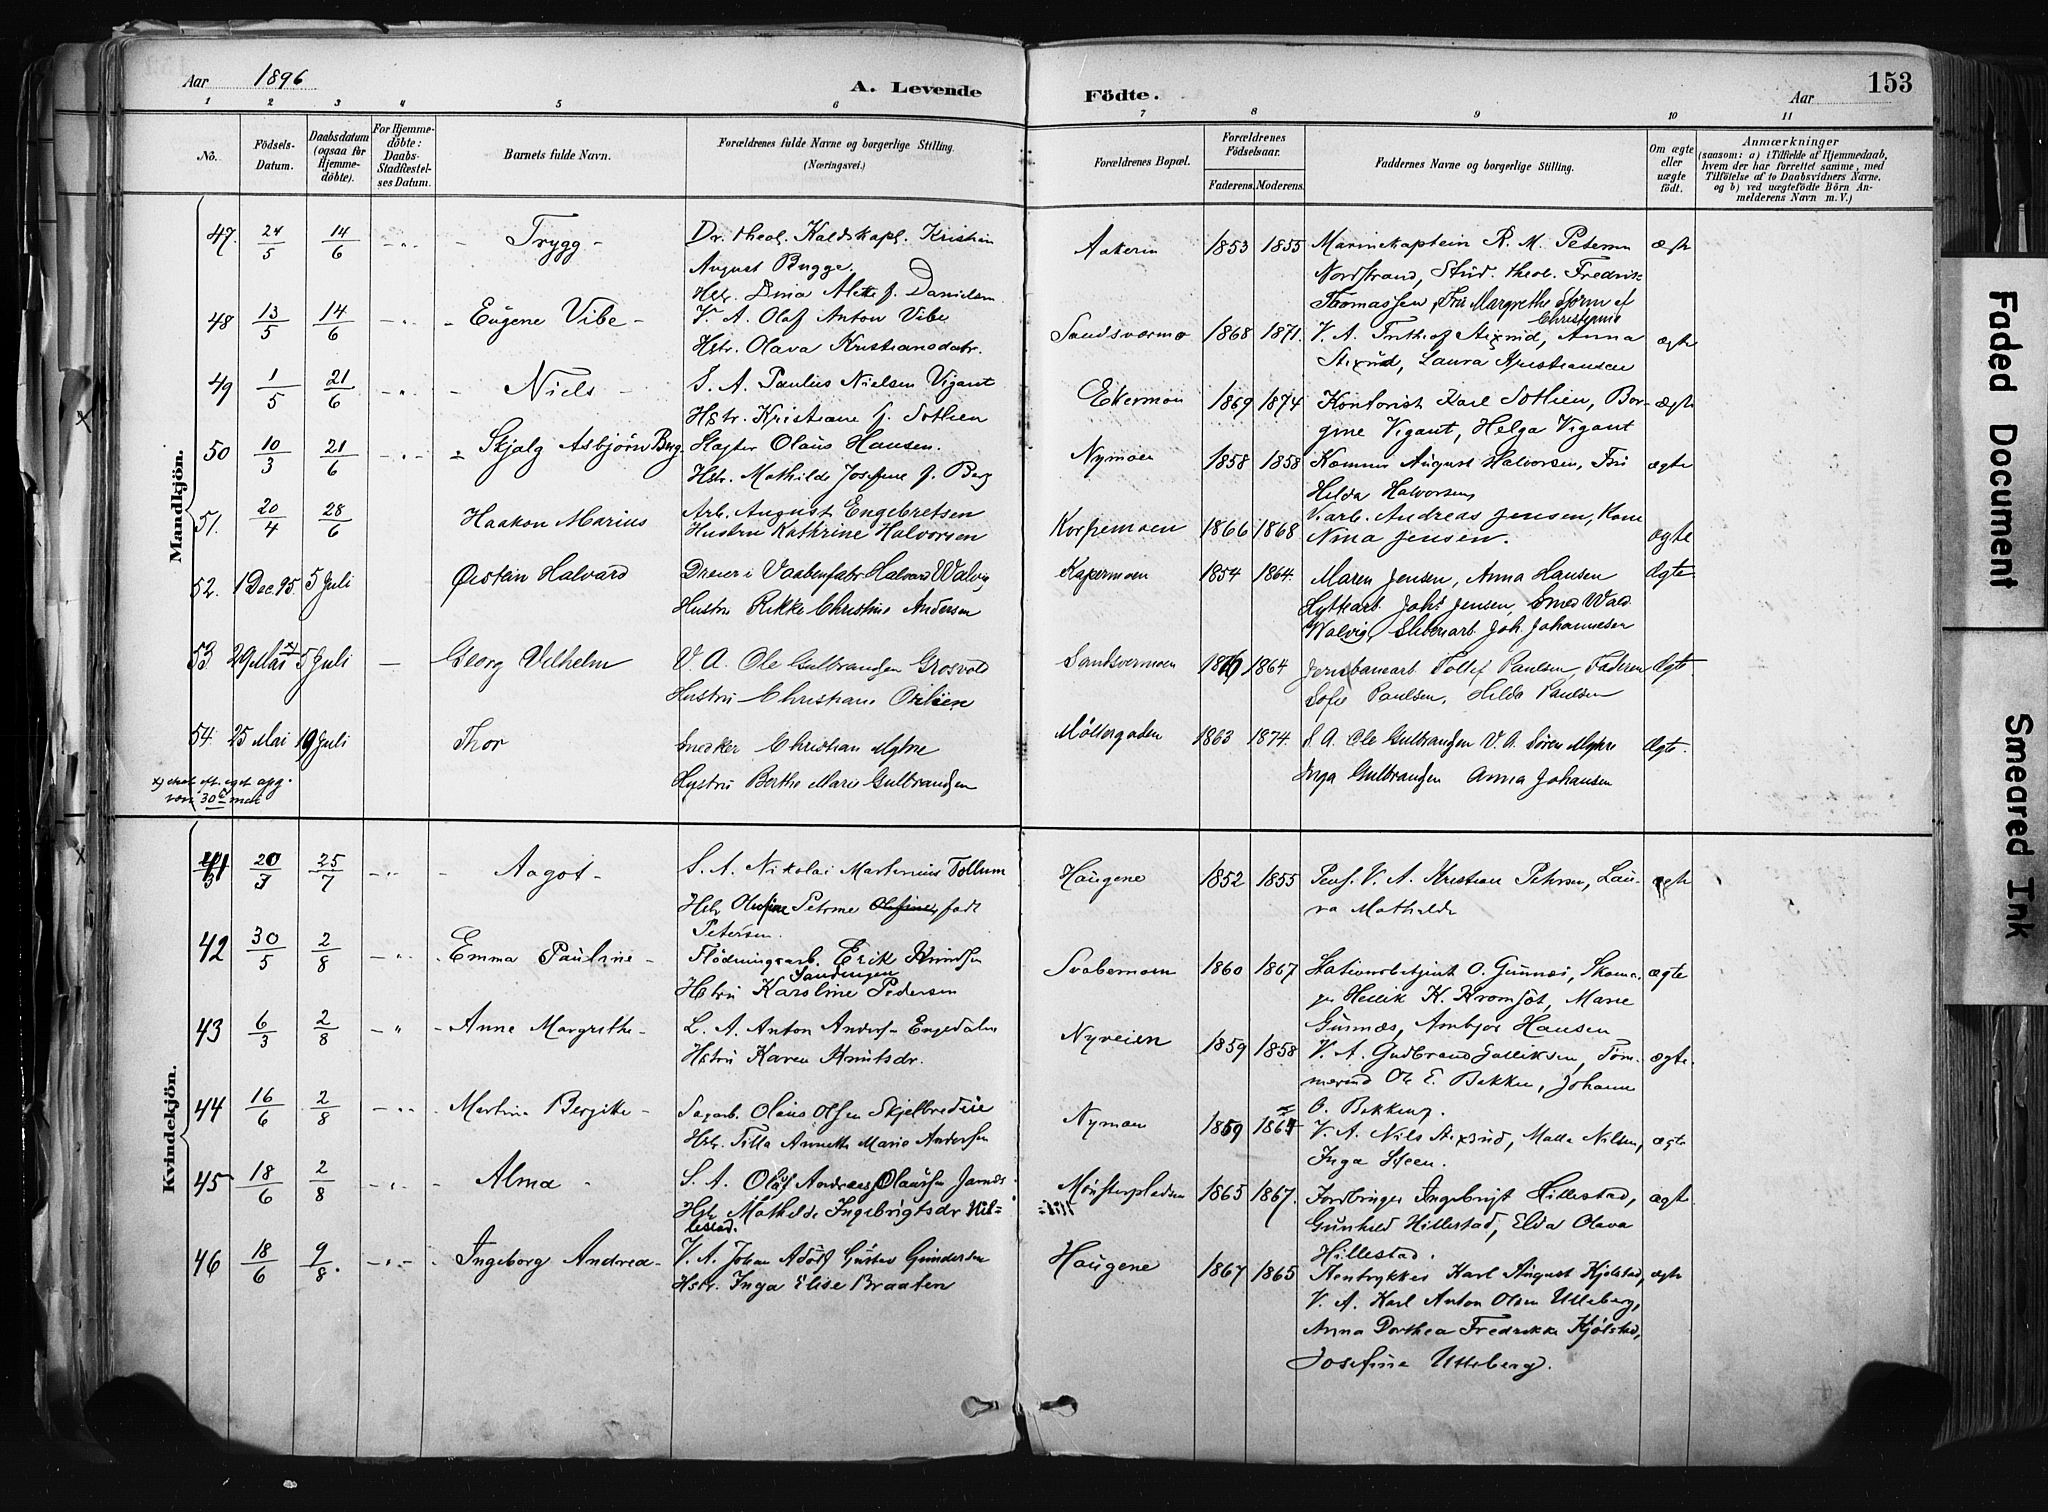 Aar 1896
A. Levende Födte.
Aar
153
1 2 3 4 5 6 7 8 9 10 11
No.
Födsels-Datum.
Daabsdatum (ogsaa for Hjemme-döbte).
For Hjemme-döbte: Daabs-Stadfæstel-ses Datum.
Barnets fulde Navn.
Forældrenes fulde Navne og borgerlige Stilling. (Næringsvei.)
Forældrenes Bopæl.
Forældrenes Födselsaar.
Faderens. Moderens.
Faddernes Navne og borgerlige Stilling.
Om ægte eller uægte födt.
Anmærkninger
(saasom: a) i Tilfælde af Hjemmedaab, hvem der har forrettet samme, med Tilföielse af to Daabsvidners Navne, og b) ved uægtefödte Börn An-melderens Navn m. V.)
Mandkjön.
47. 24/5 14/6 Trygg - Dr. theol. Kaldskapl. Kristian 1853 1855 Marinekaptein R. M. Petersen ægte
August Bugge. Nordstrand, Stud. theol. Fredrik
Hstr. Dina Alette f. Danielsen Thomassen, Frk Margrethe Storm af
Christiania
48 13/5 14/6 Eugene Vibe - V. A. Olaf Anton Vibe Sandsværmo 1868 1871. V. A. Stixrud, Anna ægte
Hstr. Olava Kristiansdatr. Stixrud, Laura Kristiansen
49 1/5 21/6 Niels - S. A. Paulus Nielsen Vigant Ekermoen 1869 1874 Kontorist Karl Sothen, Bor- ægte
Hstr. Kristiane f. Sothen gine Vigant, Helga Vigant
50 10/3 21/6 Skjalg Asbjørn Berg Olaus Hansen. Nymoen 1858 1858 August Halvorsen, Fru ægte
Hstr. Mathilde Josefine f. Berg Hilda Halvorsen
51. 20/4 28/6 Haakon Marius Arb. August Engebretsen Korpemoen 1866 1868 V.arb. Andreas Jensen, Kone ægte
Hustru Kathrine Halvorsen Nina Jensen.
52. 1 Dec. 95. 5 Juli Øistein Halvard Dreier i Vaabenfabr Halvard Walvig 1854 1864. Maren Jensen, Anna Hansen Ægte
Hustru Rikke Christine Andersen Hyttearb Johs Jensen,
Walvig, Sliberiarb. Joh. Johannesen
53 29 Mai x) 5 Juli - Georg Vilhelm V. A. Ole Gulbrandsen Grosvold Sandsværmoen 1864 Jernbanearb. Tollef Paulsen, Faderen Ægte
Hustru Christiane Sofie Paulsen, Hilda Paulsen
54. 25 Mai 19 Juli Thor Snedker Christian Myhre Møllergaden 1863 1874. S. A. Ole Gulbrandsen V. A. Søren Myhre Ægte
Hustru Berthe Marie Gulbrandsen Inga Gulbrandsen Anna Johansen
x) eft. eget opg.
Kvindekjön.
41 20/3 25/7 Aagot - S. A. Nikolai Martinius Tollum Haugene 1852 1855 Pens. V. A. Kristian Petersen, Lau- ægte
Hstr Olefine Petrine Olefine, født ra Mathilde
Petersen.
42 30/5 2/8 Emma Pauline - Flødningsarb. Erik Knudsen Svabemoen 1860 1867 Stationsbetjent O. Gusnæs, Skoma- ægte
Sandengen
Hstru Karoline Pedersen ger Hellik K. Kromsjøt, Marie
43 6/3 2/8 Anne Margrethe - L. A. Anton Anders. Engedalen Nyveien 1859 1858 Gusnæs, Hansen
Hstru Karen Knutsdr. V. A. Gudbrand Gulliksen, Tøm- ægte
mermd Ole E. Bekken, Johanne
44 16/6 2/8 Martina Bergitte - Sagarb. Olaus Olsen Nymoen 1859 O. Bekken.
Hstr. Tilla Annette Marie Andersen V. A. Nils Stixrud, Nilsen, ægte
Inga Steen.
45 18/6 2/8 Alma - S. A. Oluf Andreas Olausen 1865 1867. Jordbruger Ingebrigt Hillestad, ægte
Hstr Mathilde Ingebrigtsdr Hil- Gunhild Hillestad, Elda Olava
lestad. Hillestad.
46 18/6 9/8. Ingeborg Andrea - V. A. Johan Adolf Gustav Gundersen Haugene 1867 1865 Stentrykker Karl August Kjølstad, ægte
Hstr. Inga Elise Braaten V. A. Karl Anton Olsen Utteberg,
Anna Dorthea Fredrikke Kjølstad,
Josefine Utteberg.
Faded Document
Smeared Ink